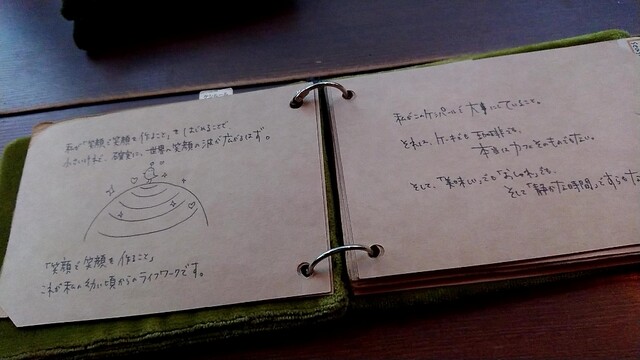 私が「笑顔で笑顔を作ること」をはじめることで
小さいけれど、確実に、世界へ笑顔の波が広がるはず。
「笑顔で笑顔を作ること」
これが私の幼い頃からのライフワークです。
私がこのケンパールで大事にしていること。
それは、ケーキでも珈琲でも、
本当はカフェそのものでもない。
そして、「美味しい」でも「おしゃれ」でも、
そして「静かな時間」ですらな